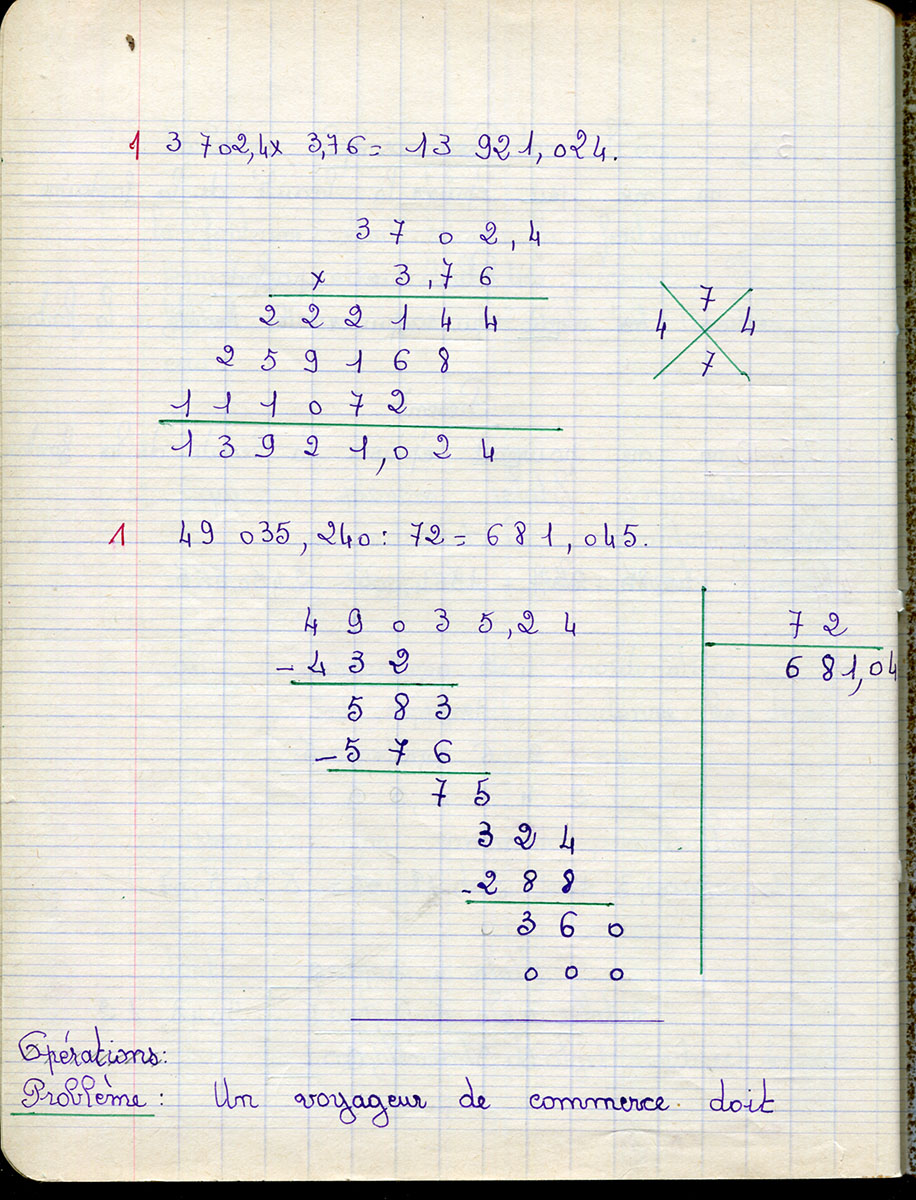 1 3 702,4 x 3,76 = 13 921,024.
3 7 0 2,4
x 3,7 6
2 2 2 1 4 4
2 5 9 1 6 8
1 1 1 0 7 2
1 3 9 2 1,0 2 4
7
4 4
7
1 49 035,240 : 72 = 681,045.
4 9 0 3 5,2 4 72
- 4 3 2 681,04
5 8 3
- 5 7 6
7 5
3 2 4
- 2 8 8
3 6 0
0 0 0
Opérations:
Problème : Un voyageur de commerce doit